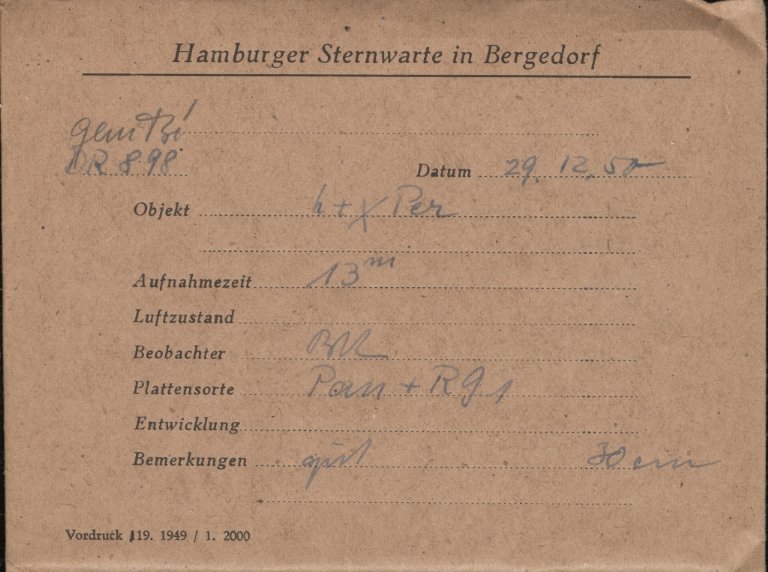 Hamburger Sternwarte in Bergedorf
DR 898
Datum 29. 12. 50
Objekt h + χ Per
Aufnahmezeit 13ᵐ
Luftzustand
Beobachter
Plattensorte Pan + RG1
Entwicklung
Bemerkungen gut 30 cm
Vordruck 119. 1949 / 1. 2000